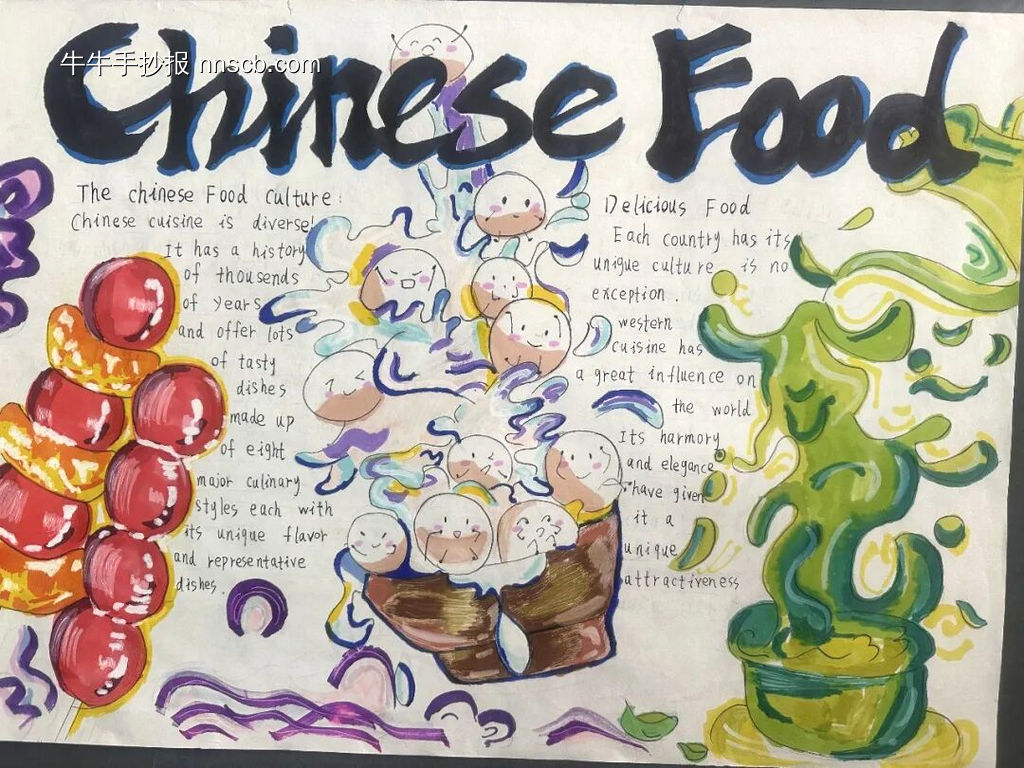 Chinese Food
牛牛手抄报 nnscb.com
The chinese Food culture:
Chinese cuisine is diverse!
It has a history
of thousends
of years
and offer lots
of tasty
dishes
made up
of eight
major culinary
styles each with
its unique flavor
and representative
dishes.
Delicious Food
Each country has its
unique culture is no
exception.
western
cuisine has
a great influence on
the world
Its harmory
and elegance
have given
it a
unique
attractiveness